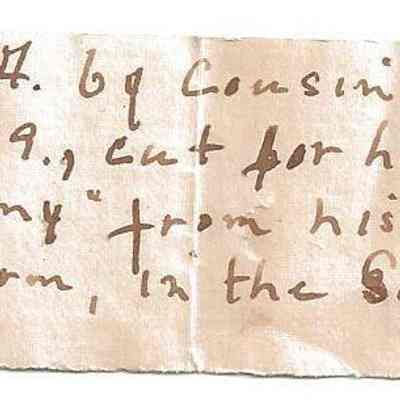 4. by Cousin
9., cut for h
ny" from his
rm, in the S